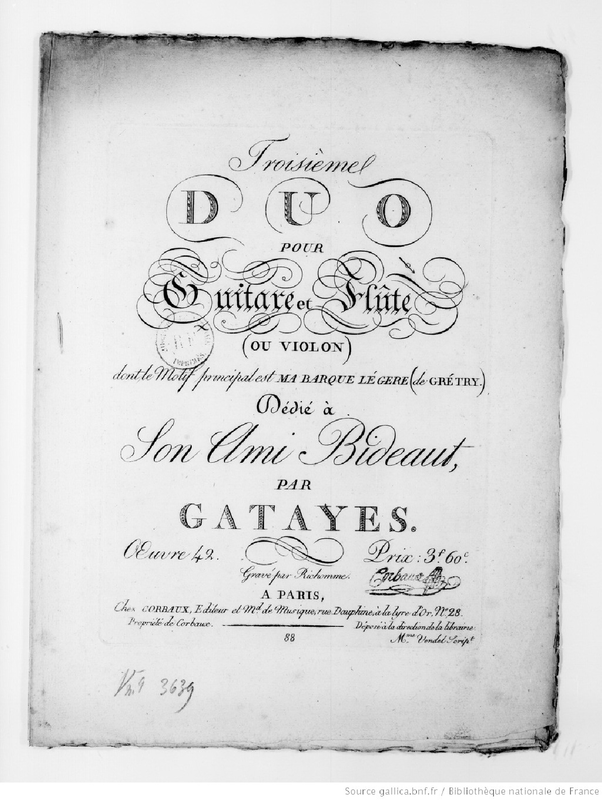 Troisième
DUO
POUR
Guitare et Flûte
(OU VIOLON)
dont le Motif principal est MA BARQUE LÉGERE (de GRÉTRY.)
Dédié à
Son Ami Bideaut,
PAR
GATAYES.
Œuvre 42. Prix: 3.f 60.c
Gravé par Richomme.
A PARIS,
Chez CORBAUX, Editeur et M.d de Musique, rue Dauphine, à la lyre d'Or, N.o 28.
Propriété de Corbaux. Déposé à la direction de la librairie.
88 M.me Vendel Scrip.t
Vm9 3639
Source gallica.bnf.fr / Bibliothèque nationale de France